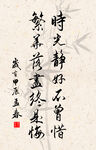 時光靜好不曾惜
繁華落盡終是悔
歲言甲辰孟春